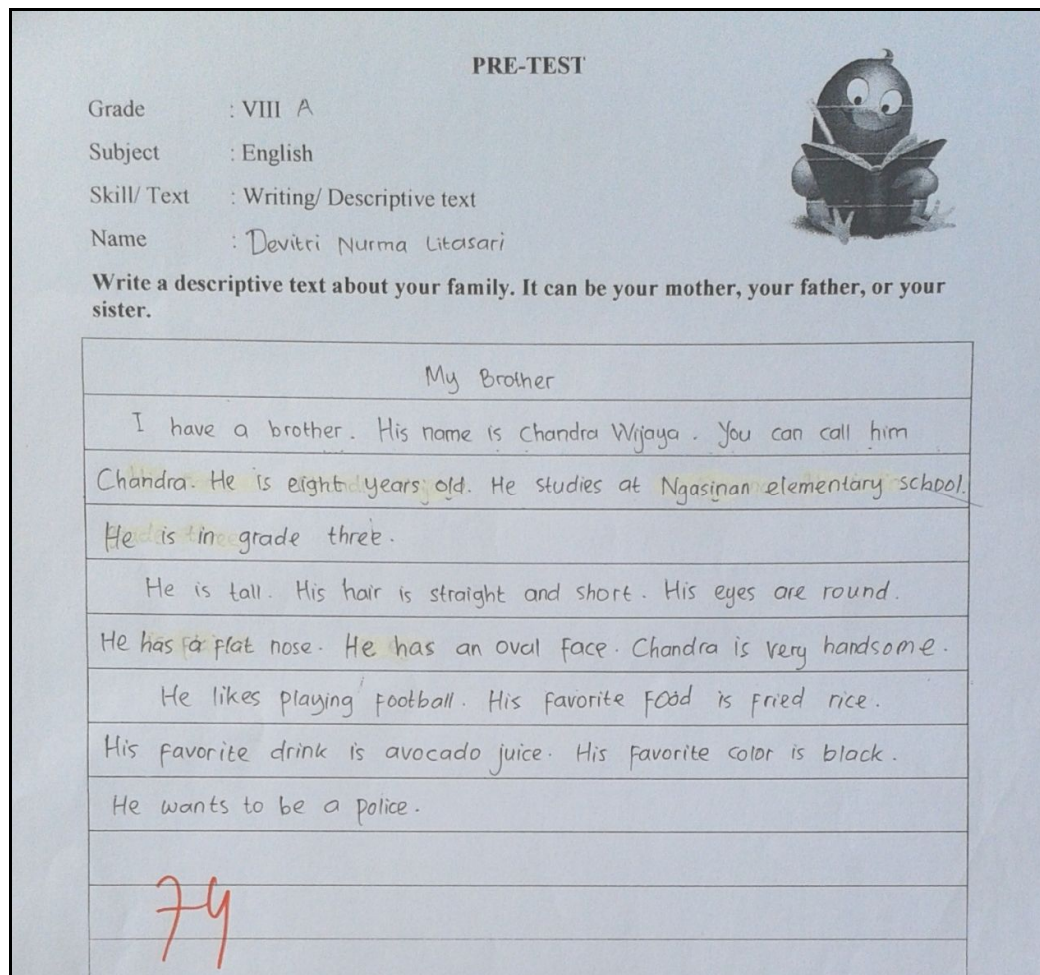 PRE-TEST
Grade : VIII A
Subject : English
Skill/ Text : Writing/ Descriptive text
Name : Devitri Nurma Litasari
Write a descriptive text about your family. It can be your mother, your father, or your
sister.
My Brother
I have a brother. His name is Chandra Wijaya. You can call him
Chandra. He is eight years old. He studies at Ngasinan elementary school.
He is in grade three.
He is tall. His hair is straight and short. His eyes are round.
He has a flat nose. He has an oval face. Chandra is very handsome.
He likes playing football. His favorite food is fried rice.
His favorite drink is avocado juice. His favorite color is black.
He wants to be a police.
74